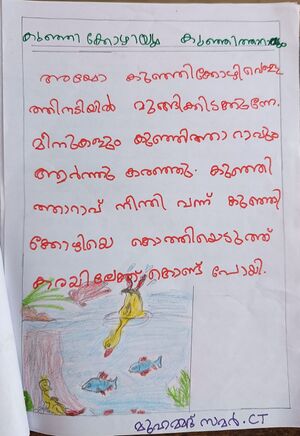 കുഞ്ഞി കോഴിയും കുഞ്ഞിത്താറാവും
അയ്യോ കുഞ്ഞിക്കോഴി വെള്ള
ത്തിനടിയിൽ മുങ്ങിക്കിടക്കുന്നേ.
മീനുകളും കുഞ്ഞിത്താറാവും
ആർത്തു കരഞ്ഞു. കുഞ്ഞി
ത്താറാവ് നീന്തി വന്ന് കുഞ്ഞി
ക്കോഴിയെ കൊത്തിയെടുത്ത്
കരയിലേക്ക് കൊണ്ട് പോയി.
മുഹമ്മദ് സമർ. CT